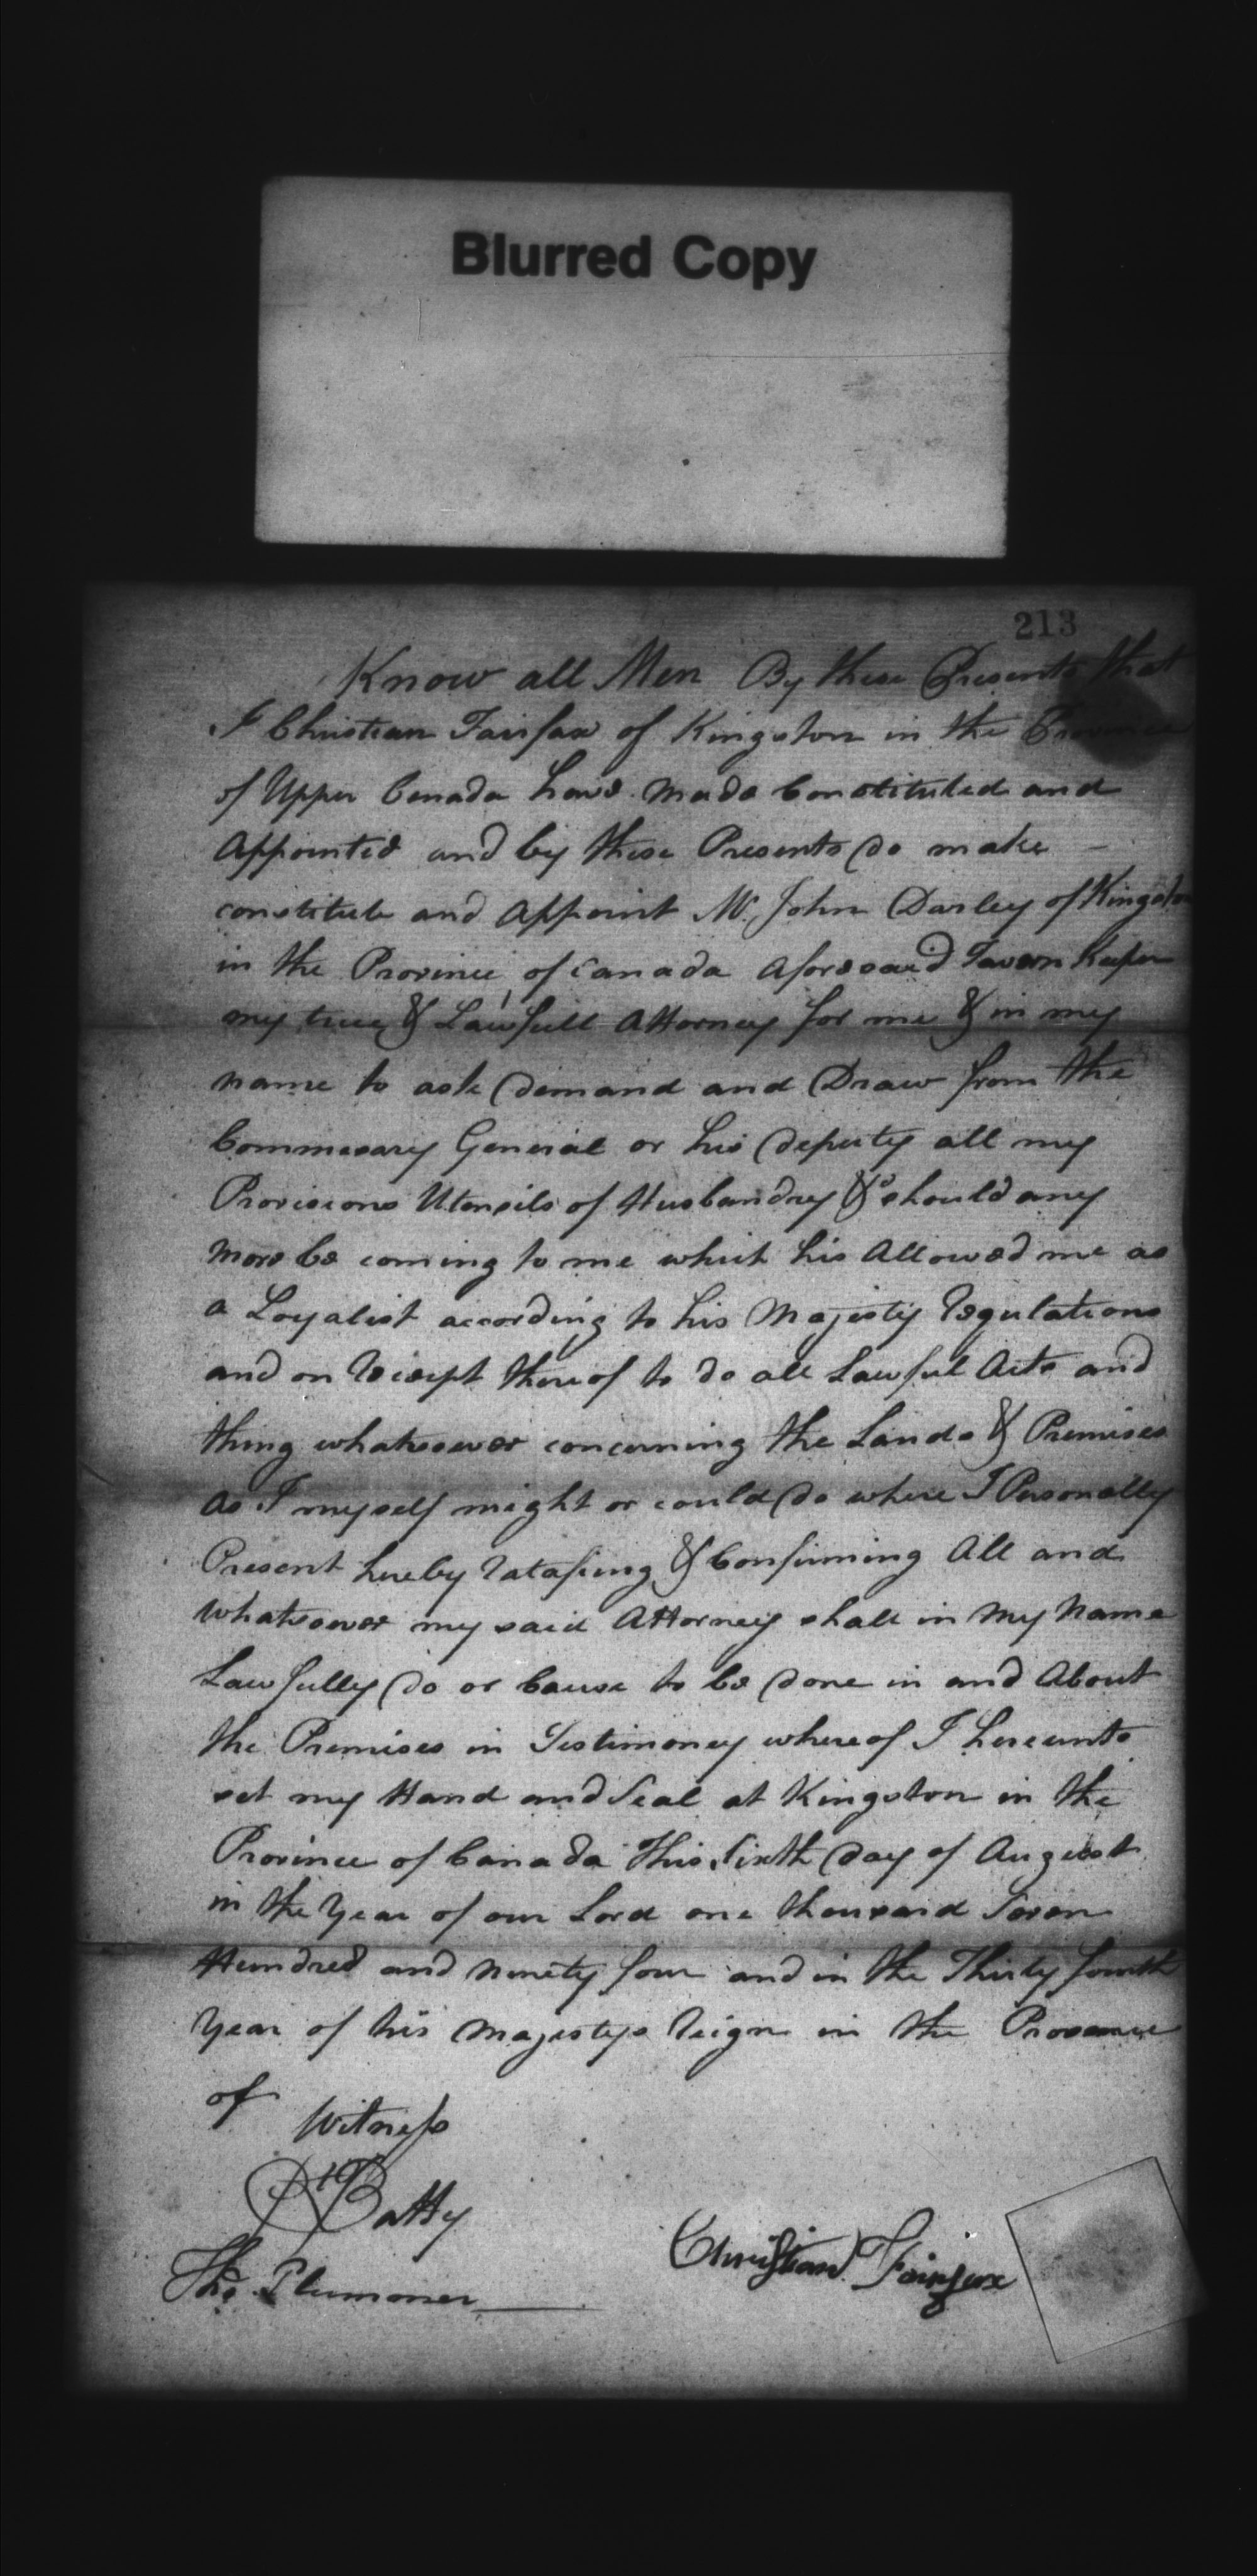 Blurred Copy
213
Know all Men By these Presents that
I Christian Fairfax of Kingston in the Province
of Upper Canada have made Constituted and
Appointed and by these Presents do make –
constitute and Appoint Mr. John Darley of Kingston
in the Province of Canada Aforesaid Tavern Keeper
my true & Lawfull Attorney for me & in my
name to ask Demand and Draw from the
Commesary General or his deputy all my
Provisions Utensils of Husbandrey &c should any
more be coming to me which his Allowed me as
a Loyalist according to his Majesty Regulations
and on Reciept thereof to do all Lawful Acts and
thing whatsoever concerning the Lands & Premises
As I myself might or could do where I Personally
Present hereby Ratafiing & Confirming All and
Whatsoever my said Attorney shall in My Name
Lawfully do or Cause to be done in and About
the Premises in Testimoney whereof I hereunto
set my Hand and Seal at Kingston in the
Province of Canada This Sixth Day of August
in the Year of our Lord one thousand Seven
Hundred and Ninety four and in the Thirty fourth
Year of his Majestys Reign in the
of Witness
Batty
Thos. Plummer
Christian Fairfax